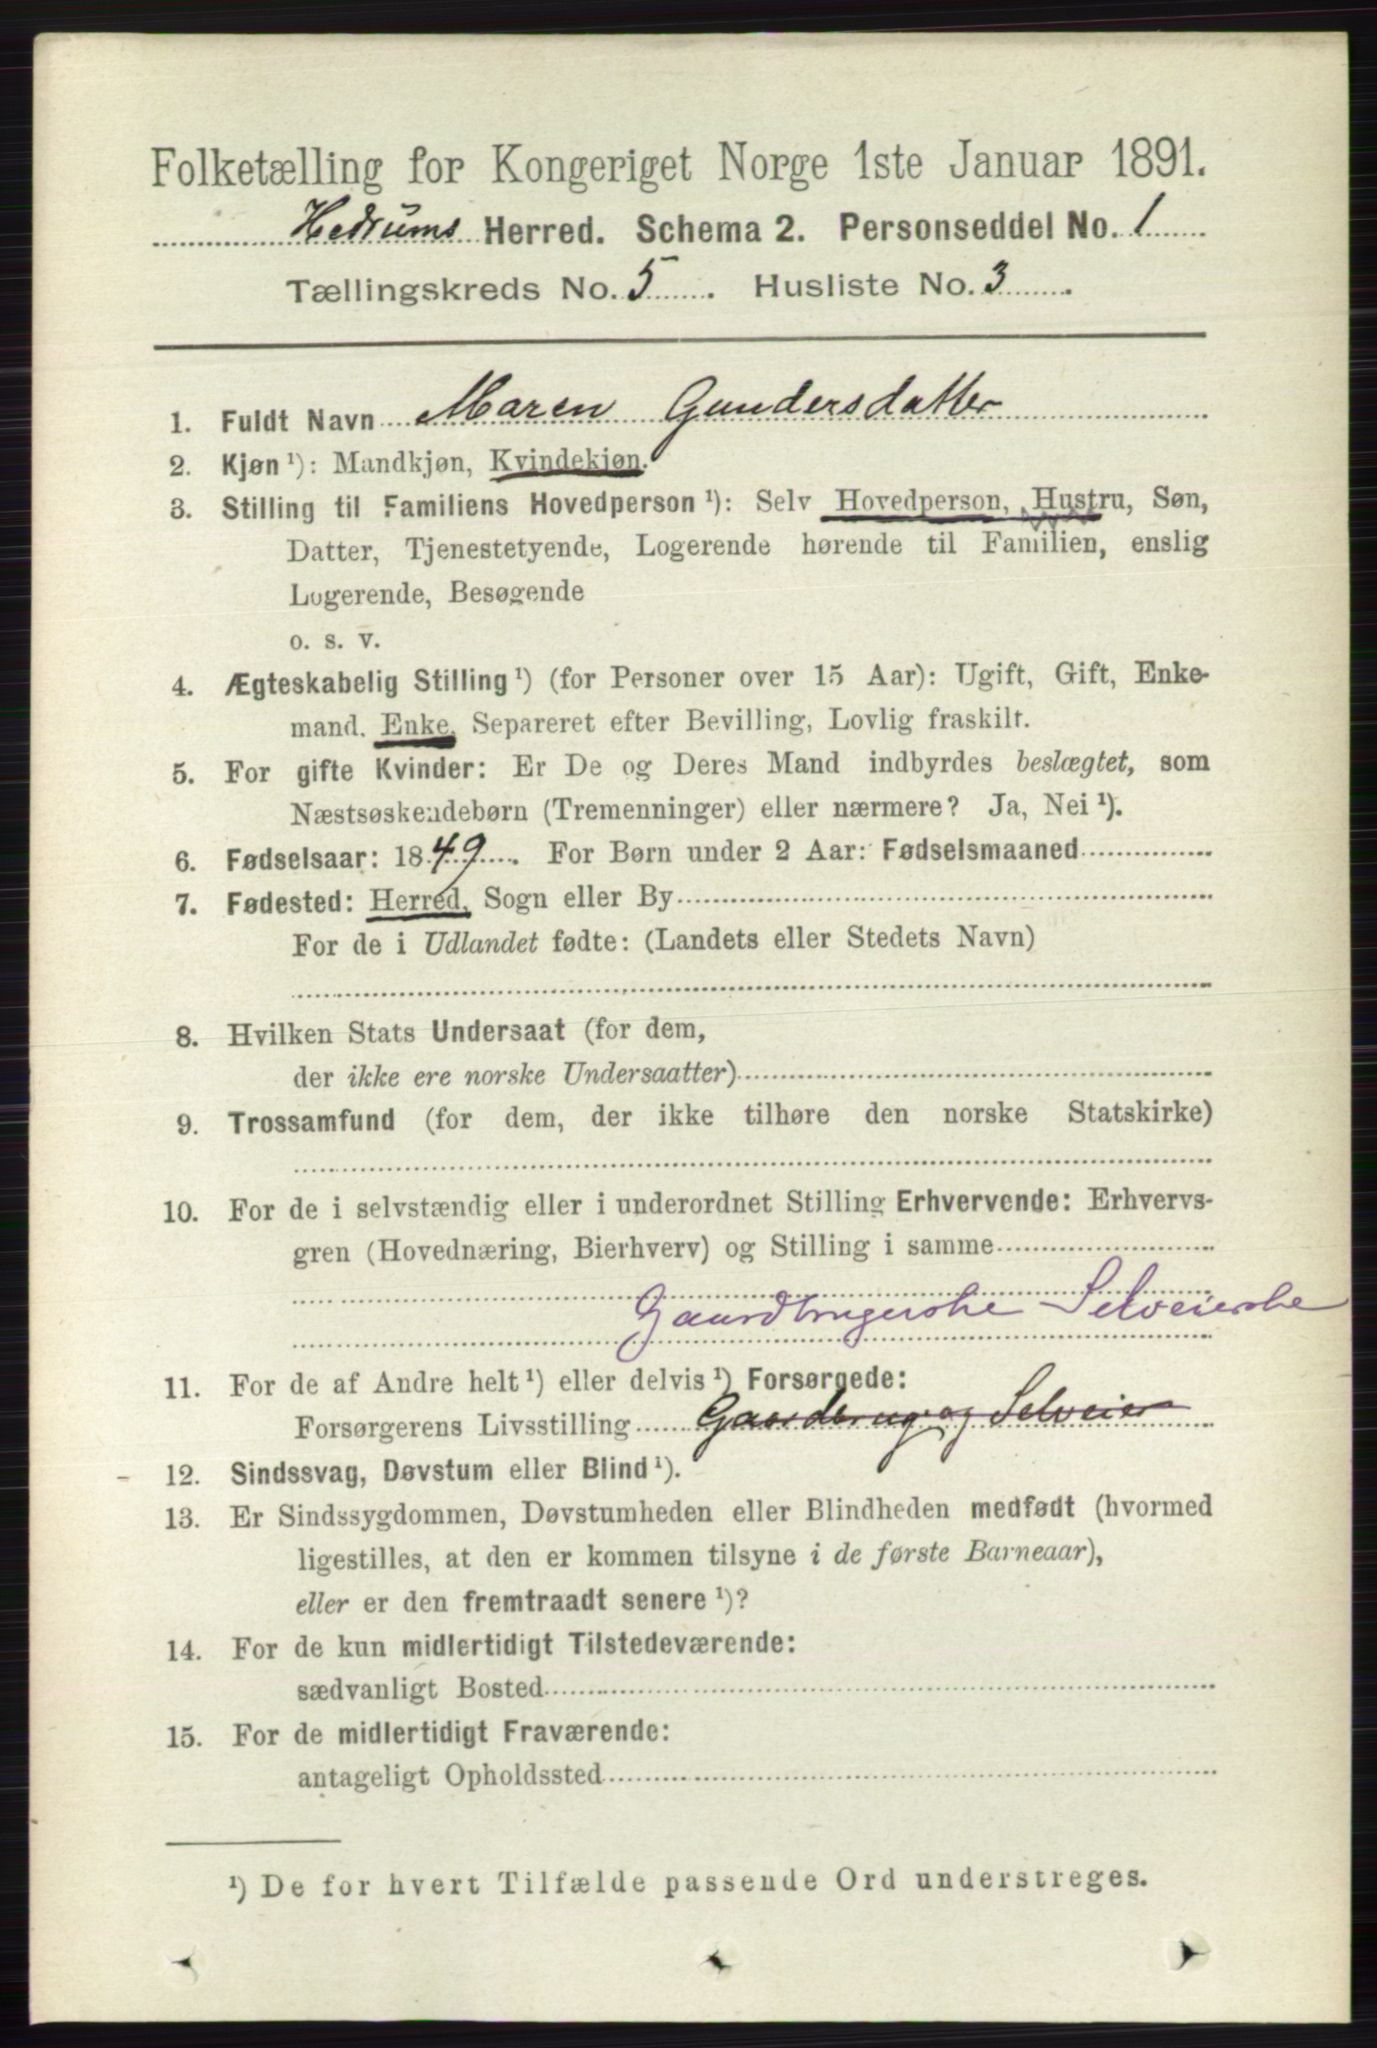 Folketælling for Kongeriget Norge 1ste Januar 1891.
Hedrums Herred. Schema 2. Personseddel No. 1
Tællingskreds No. 5. Husliste No. 3.
1. Fuldt Navn Maren Gundersdatter
2. Kjøn ¹): Mandkjøn, Kvindekjøn.
3. Stilling til Familiens Hovedperson ¹): Selv Hovedperson, Hustru, Søn,
Datter, Tjenestetyende, Logerende hørende til Familien, enslig
Logerende, Besøgende
o. s. v.
4. Ægteskabelig Stilling ¹) (for Personer over 15 Aar): Ugift, Gift, Enke-
mand. Enke, Separeret efter Bevilling, Lovlig fraskilt.
5. For gifte Kvinder: Er De og Deres Mand indbyrdes beslægtet, som
Næstsøskendebørn (Tremenninger) eller nærmere? Ja, Nei ¹).
6. Fødselsaar: 1849. For Børn under 2 Aar: Fødselsmaaned
7. Fødested: Herred, Sogn eller By
For de i Udlandet fødte: (Landets eller Stedets Navn)
8. Hvilken Stats Undersaat (for dem,
der ikke ere norske Undersaatter)
9. Trossamfund (for dem, der ikke tilhøre den norske Statskirke)
10. For de i selvstændig eller i underordnet Stilling Erhvervende: Erhvervs-
gren (Hovednæring, Bierhverv) og Stilling i samme
Gaardbrugerske Selveierske
11. For de af Andre helt ¹) eller delvis ¹) Forsørgede:
Forsørgerens Livsstilling Gaardbrug og Selveier
12. Sindssvag, Døvstum eller Blind ¹).
13. Er Sindssygdommen, Døvstumheden eller Blindheden medfødt (hvormed
ligestilles, at den er kommen tilsyne i de første Barneaar),
eller er den fremtraadt senere ¹)?
14. For de kun midlertidigt Tilstedeværende:
sædvanligt Bosted
15. For de midlertidigt Fraværende:
antageligt Opholdssted
¹) De for hvert Tilfælde passende Ord understreges.